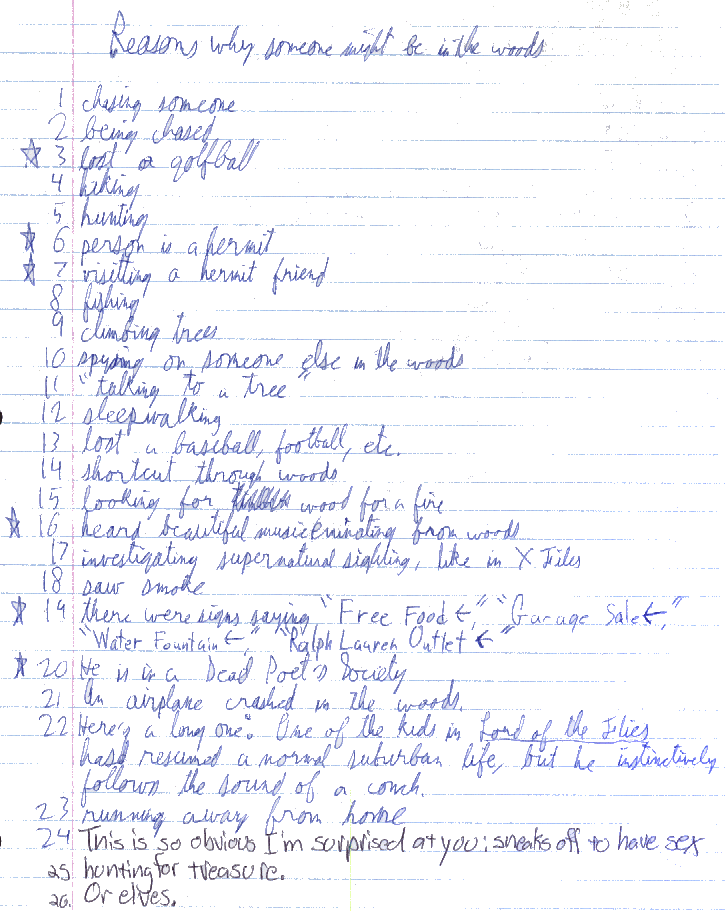 Reasons why someone might be in the woods
1 chasing someone
2 being chased
☆ 3 lost a golfball
4 hiking
5 hunting
☆ 6 person is a hermit
☆ 7 visitting a hermit friend
8 fishing
9 climbing trees
10 spying on someone else in the woods
11 "talking to a tree"
12 sleepwalking
13 lost a baseball, football, etc.
14 shortcut through woods
15 looking for wood for a fire
☆ 16 heard beautiful music eminating from woods
17 investigating supernatural sighting, like in X Files
18 saw smoke
☆ 19 there were signs saying "Free Food ←," "Garage Sale ←,"
"Water Fountain ←," "Ralph Lauren Outlet ←"
☆ 20 He is in a Dead Poet's Society
21 An airplane crashed in the woods.
22 Here's a long one: One of the kids in Lord of the Flies
had resumed a normal suburban life, but he instinctively
follows the sound of a conch.
23 running away from home
24 This is so obvious I'm surprised at you: sneaks off to have sex
25 hunting for treasure.
26. Or elves.